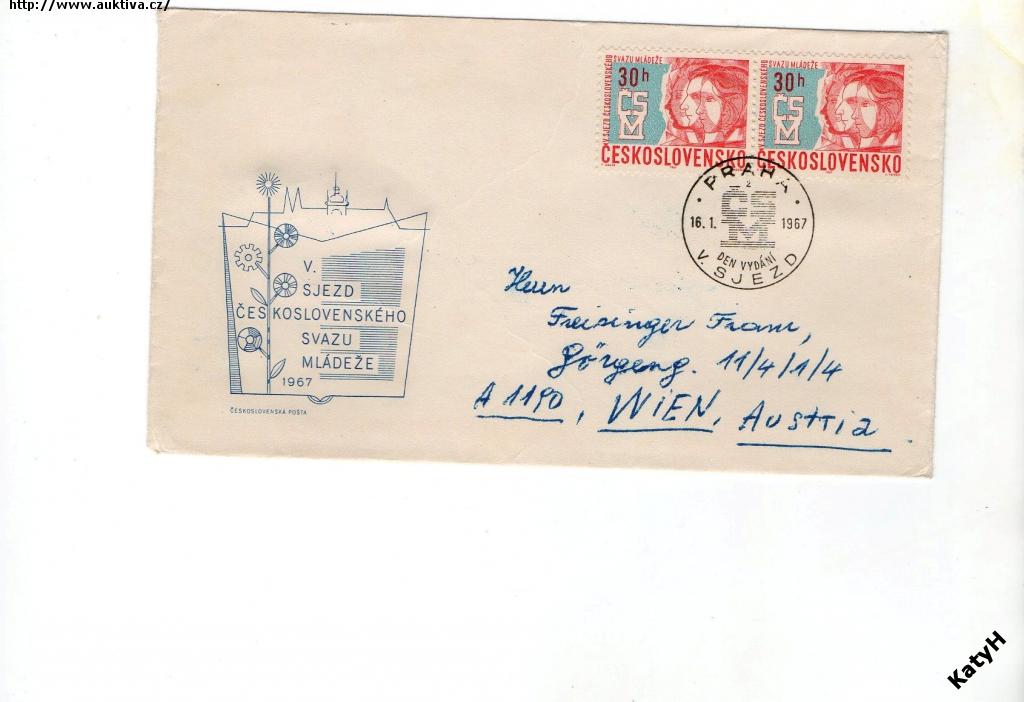 http://www.auktiva.cz/
V SJEZD ČESKOSLOVENSKÉHO
SVAZU MLÁDEŽE
30h
ČSM
ČESKOSLOVENSKO
V SJEZD ČESKOSLOVENSKÉHO
SVAZU MLÁDEŽE
30h
ČSM
ČESKOSLOVENSKO
PRAHA
2
ČSM
16.1. 1967
DEN VYDÁNÍ
V. SJEZD
V.
SJEZD
ČESKOSLOVENSKÉHO
SVAZU
MLÁDEŽE
1967
ČESKOSLOVENSKÁ POŠTA
Herrn
Freisinger Franz,
11/4/1/4
A 1190, WIEN, Austria.
KatyH